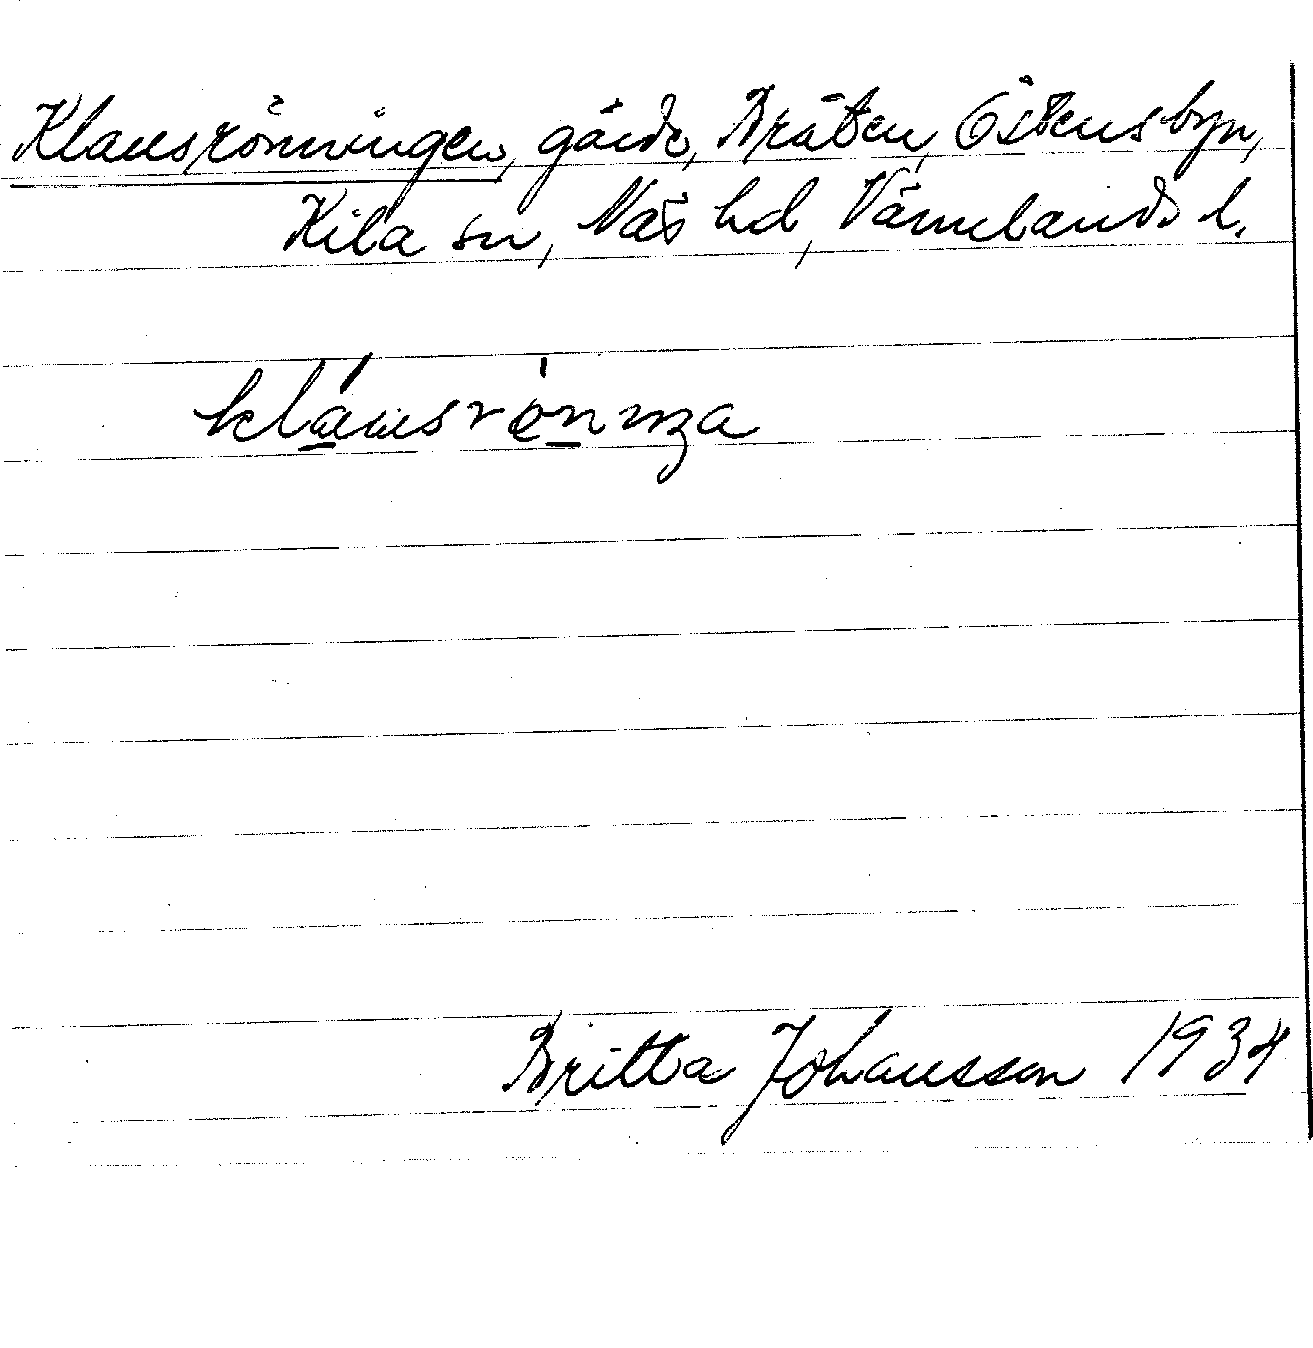 Klausrönningen, gärde, Bråten, Östensbyn,
Kila sn, Näs hd, Värmlands l.
Britta Johansson 1934